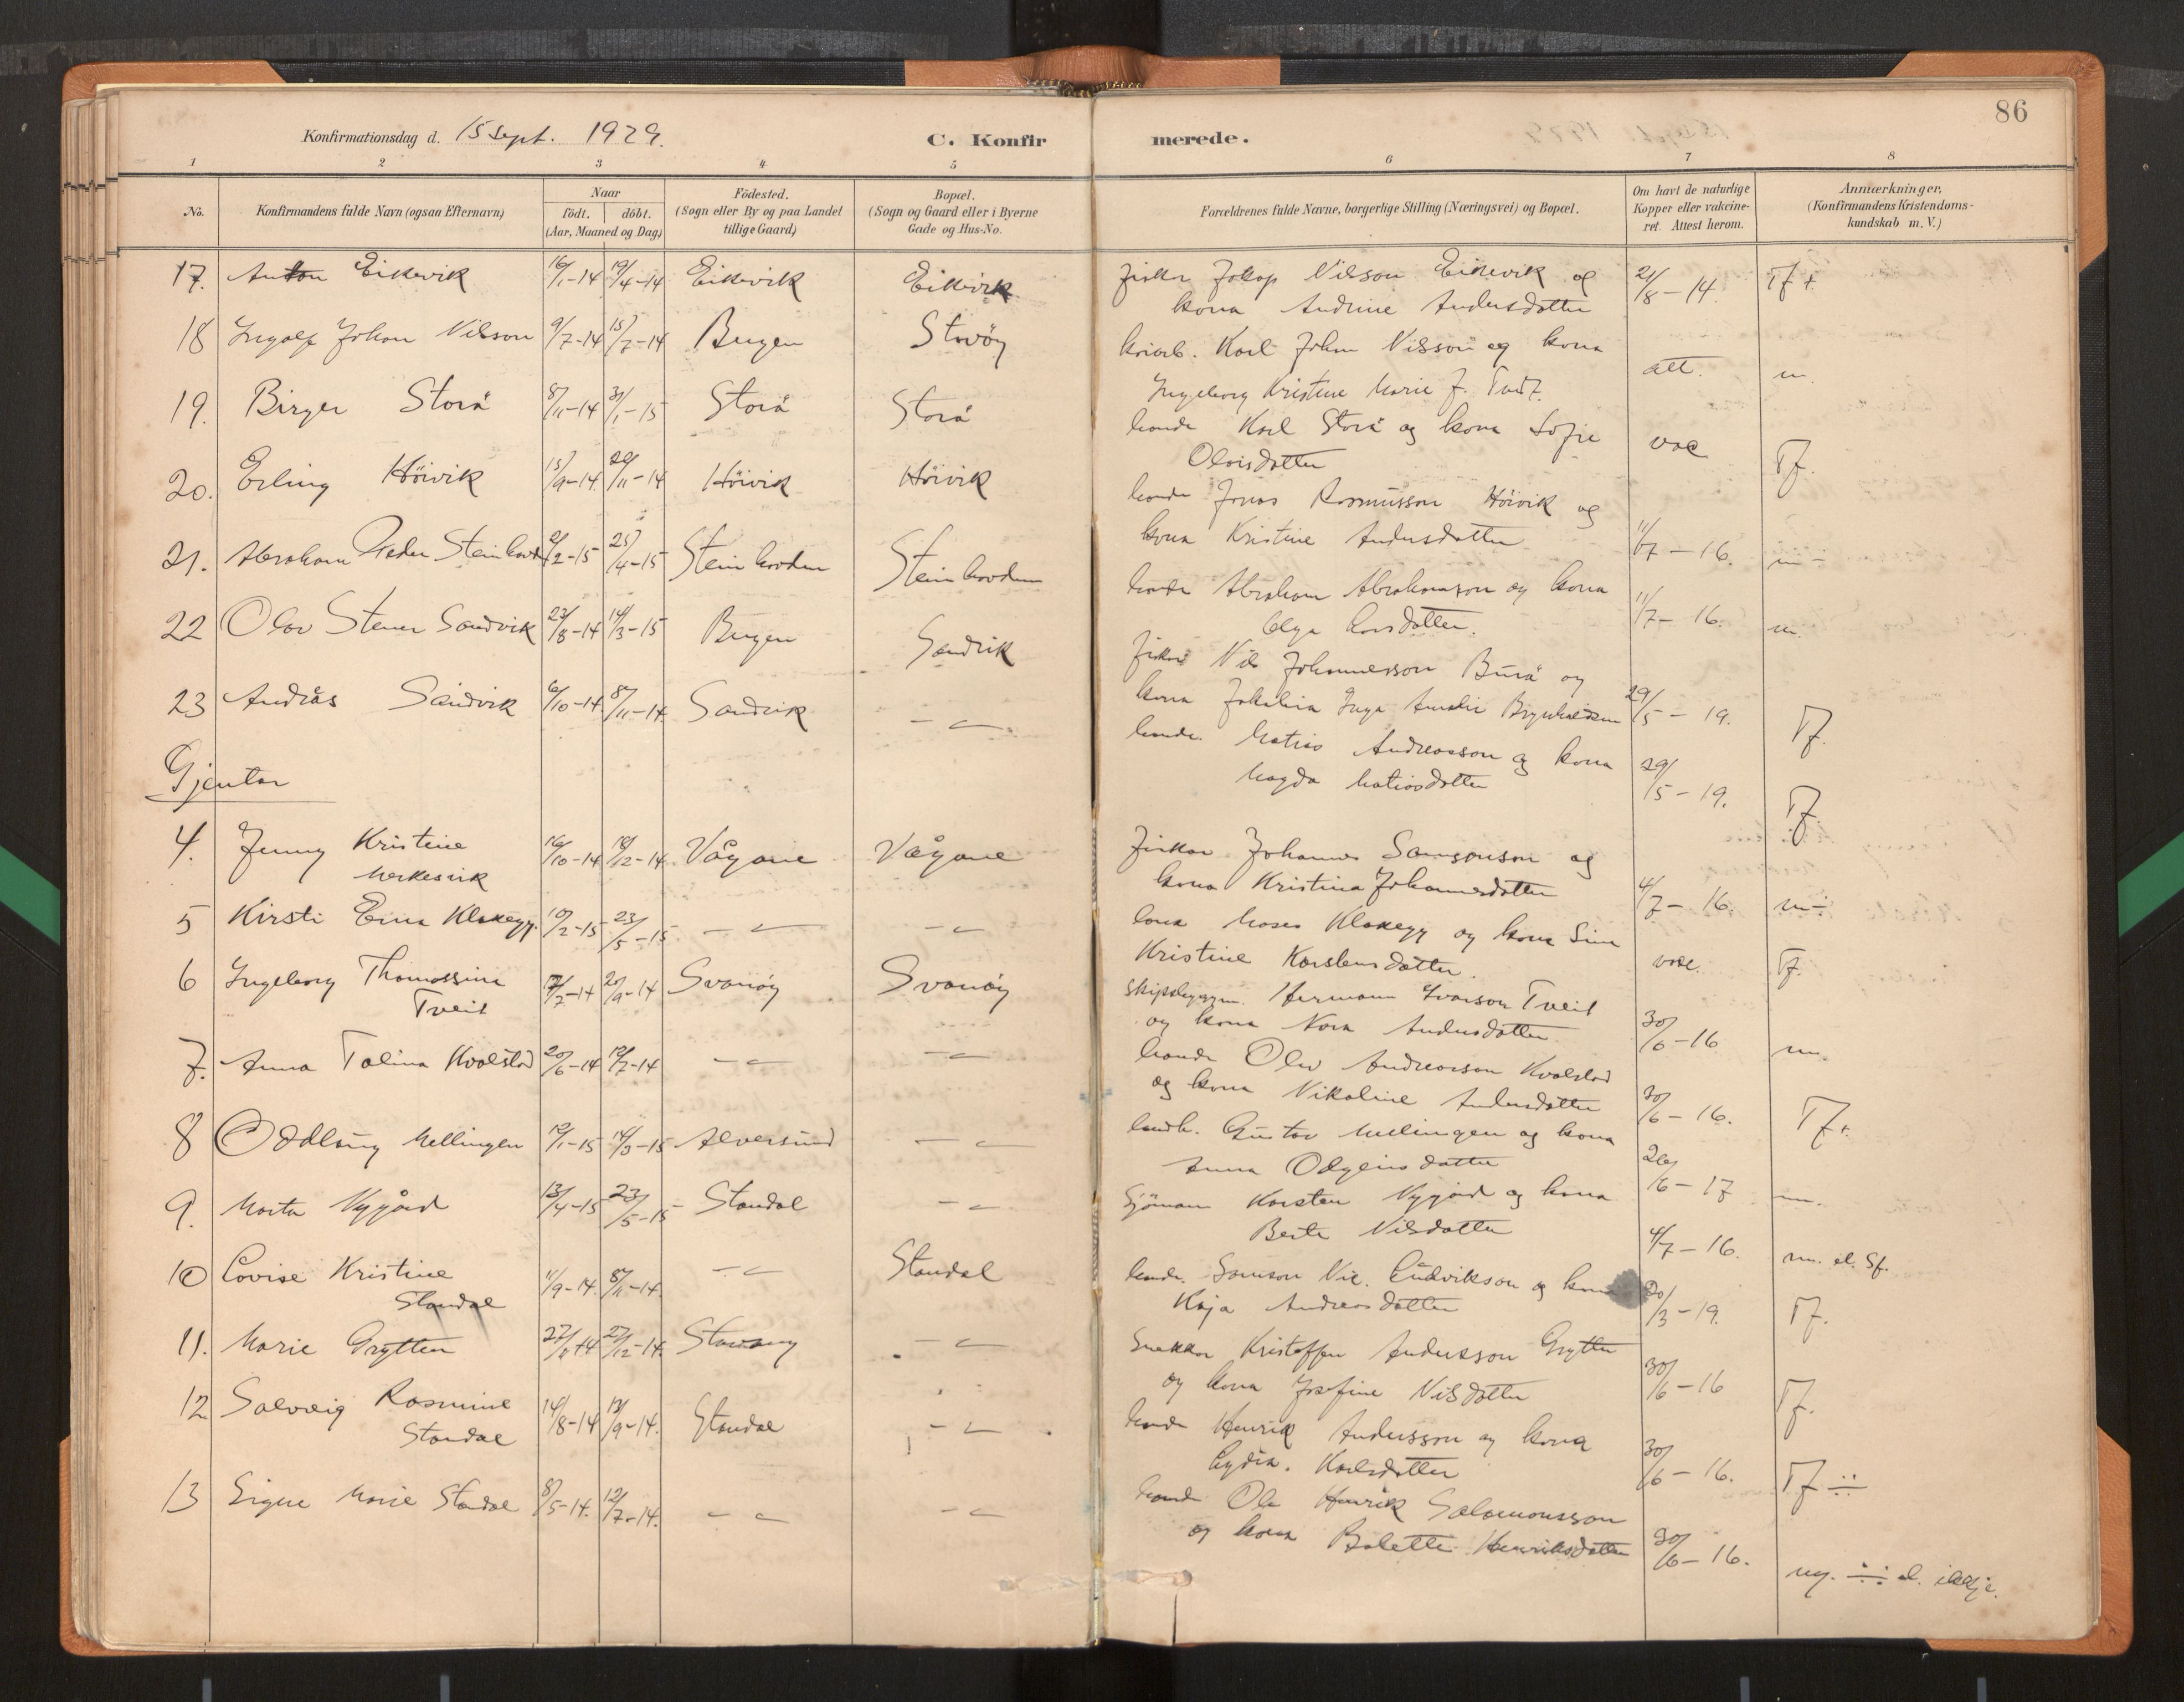 86
Konfirmationsdag d. 15 Sept. 1929.
C. Konfirmerede.
1 2 3 4 5 6 7 8
No.
Konfirmandens fulde Navn (ogsaa Efternavn)
Naar
födt. döbt.
(Aar, Maaned og Dag)
Födested.
(Sogn eller By og paa Landet
tillige Gaard)
Bopæl.
(Sogn og Gaard eller i Byerne
Gade og Hus-No.
Forældrenes fulde Navne, borgerlige Stilling (Næringsvei) og Bopæl.
Om havt de naturlige
Kopper eller vakcine-
ret. Attest herom.
Anmærkninger.
(Konfirmandens Kristendoms-
kundskab m. V.)
17. Anton Eikevik 16/1-14 19/4-14 Eikevik Eikevik
fiskar Jakop Nilsson Eikevik og 21/8-14. Tf +
kona Andrine Andersdotter
18 Ingolf Johan Nilsson 9/7-14 15/7-14 Bergen Storöy
Karl Johan Nilsson og kona att. m.
Ingeborg Kristine Marie f. Tvedt.
19. Birger Storå 8/11-14 31/1-15 Storå Storå
bonde Karl Storå og kona Sofie vac Tf.
Olaisdotter
20. Erling Höivik 15/9-14 20/11-14 Höivik Höivik
bonde Jonas Rasmusson Höivik og
kona Kristine Andersdotter 11/7-16. m-
21. Abraham Peder Steinhovden 2/2-15 25/4-15 Steinhovden Steinhovden
bonde Abraham Abrahamson og kona 11/7-16. m.
Olga Larsdotter.
22 Olav Stener Sandvik 23/8-14 14/3-15 Bergen Sandvik
fiskar Nils Johannesson Burå og
kona Jakobina Inga Amalie Brynhildsen 29/5-19. Tf.
23 Andreas Sandvik 6/10-14. 8/11-14. Sandvik -"-
bonde Matias Andreasson og kona 29/5-19. Tf.
Magda Matiasdotter
Gjentor
4. Jenny Kristine 16/10-14 18/12-14. Vågane Vågane
Merkesvik
fiskar Johannes Samsonson og
kona Kristina Johannesdotter 4/7-16. m÷
5 Kirsti Erna Klakegg. 10/2-15 23/5-15. -"- -"-
Moses Klakegg og kona Sina
Kristine Karstensdotter. vac. Tf.
6 Ingeborg Thomassine 17/7-14 20/9-14 Svanöy Svanöy
Tveit
skipsbyggm. Hermann Ivarson Tveit
og kona Nora Andersdotter 30/6-16 m.
7. Anna Talina Kvalstad 20/6-14 12/7-14 -"- -"-
bonde Olav Andreasson Kvalstad
og kona Nikoline Andersdotter 30/6-16. Tf+.
8 Oddlaug Mellingen 12/1-15 14/3-15 Alversund -"-
Gustav Mellingen og kona 26/6-17 m.
Anna Odgeirsdotter
9. Marta Nygård 13/4-15 23/5-15 Standal -"-
Sjömann Karsten Nygård og kona
Berte Nilsdotter 4/7-16. m. el. Sf.
10 Lovise Kristine 11/9-14. 8/11-14. -"- Standal
Standal
bonde. Samson Nic. Ludvikson og kona 20/3-19. Tf.
Kaja Andreasdotter
11. Marie Grytten 27/11-14 27/12-14. Stavang -"-
Snekkar Kristoffer Andersson Grytten
og kona Josefine Nilsdotter 30/6-16 Tf.
12 Solveig Rasmine 14/8-14 13/9-14. Standal -"-
Standal
bonde Henrik Andersson og kona
Lydia Karlsdotter 30/6-16. Tf ÷
13 Signe Marie Standal 8/5-14. 12/7-14. -"- -"-
bonde Ole Henrik Salamonsson
og kona Bolette Henriksdotter 30/6-16. ng. ÷ el. ikkje.